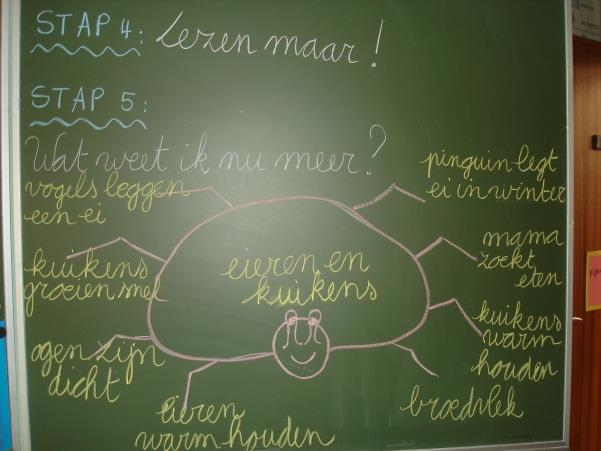 STAP 4: Lezen maar!
STAP 5:
Wat weet ik nu meer?
vogels leggen
een ei
kuikens
groeien snel
ogen zijn
dicht
eieren
warm houden
eieren en
kuikens
pinguin legt
ei in winter
mama
zoekt
eten
kuikens
warm
houden
broedvlek